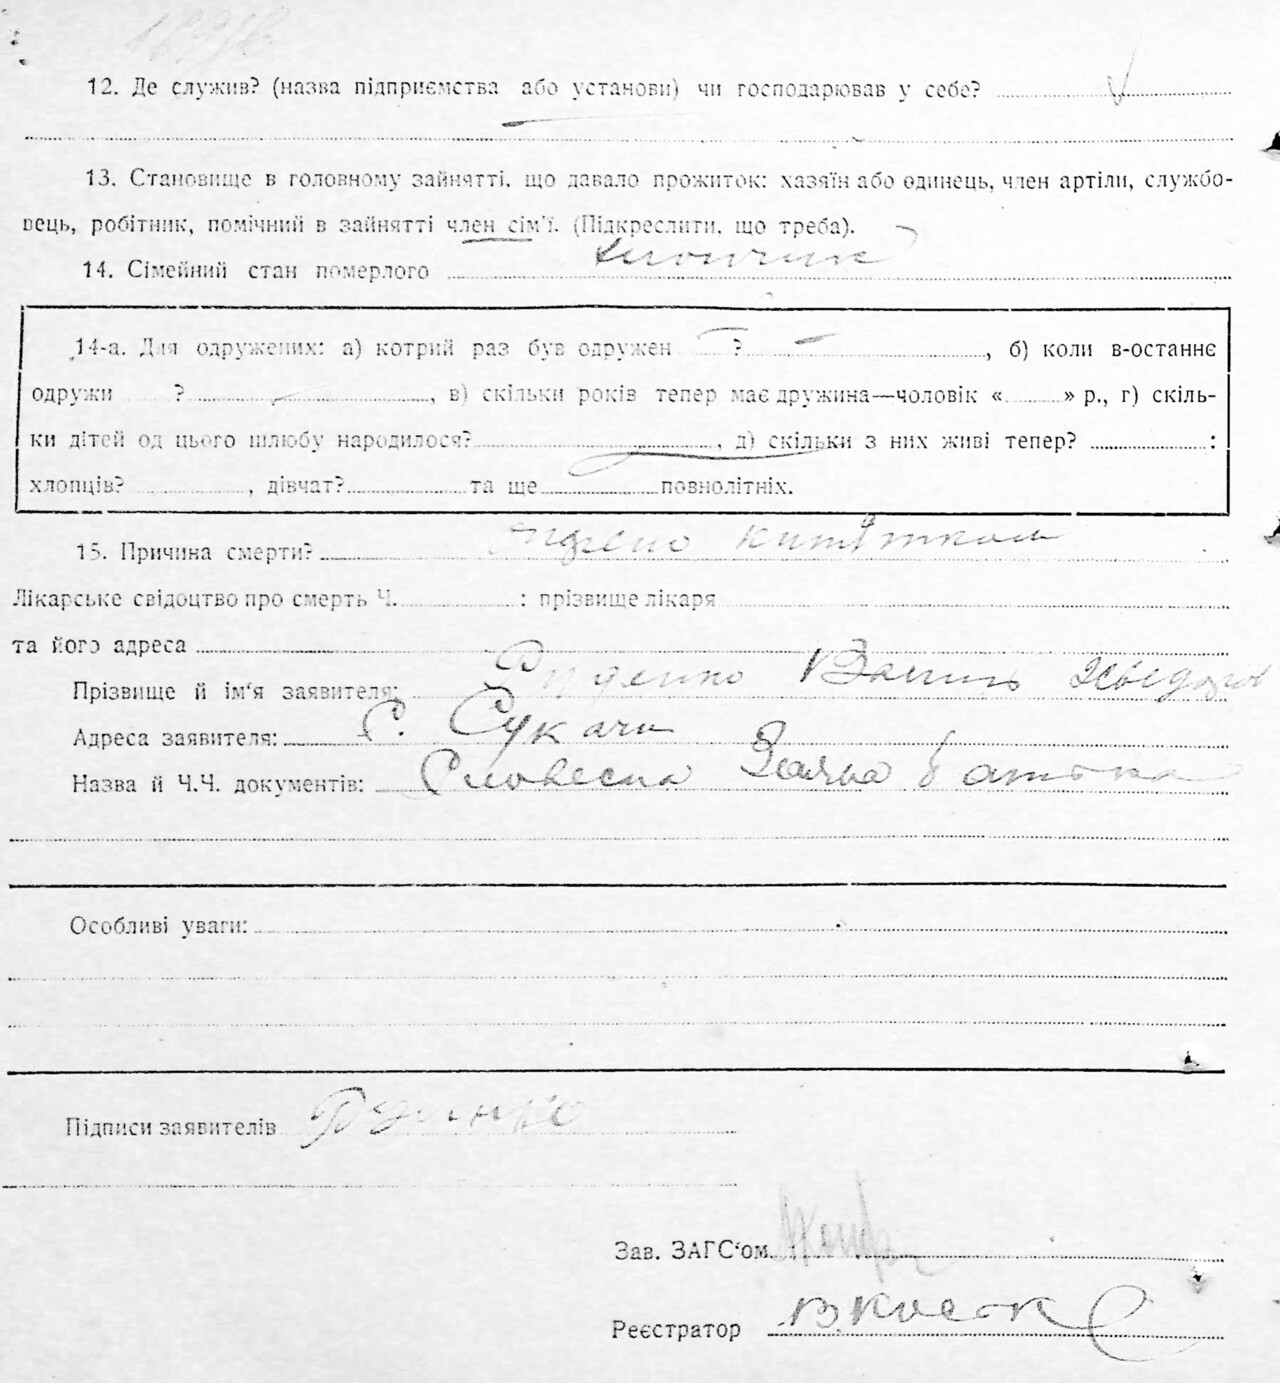 12. Де служив? (назва підприємства або установи) чи господарював у себе?
13. Становище в головному зайнятті, що давало прожиток: хазяїн або одинець, член артіли, службо-
вець, робітник, помічний в зайнятті член сім'ї. (Підкреслити, що треба).
14. Сімейний стан померлого хлопчик
14-а. Для одружених: а) котрий раз був одружен ?, б) коли в-останнє
одружи ?, в) скільки років тепер має дружина—чоловік « » р., г) скіль-
ки дітей од цього шлюбу народилося?, д) скільки з них живі тепер? :
хлопців? , дівчат? та ще повнолітніх.
15. Причина смерти?
Лікарське свідоцтво про смерть Ч. : прізвище лікаря
та його адреса
Прізвище й ім'я заявителя:
Адреса заявителя: С. Сукачи
Назва й Ч.Ч. документів: Словесна Заява батька
Особливі уваги:
Підписи заявителів
Зав. ЗАГС'ом.
Реєстратор